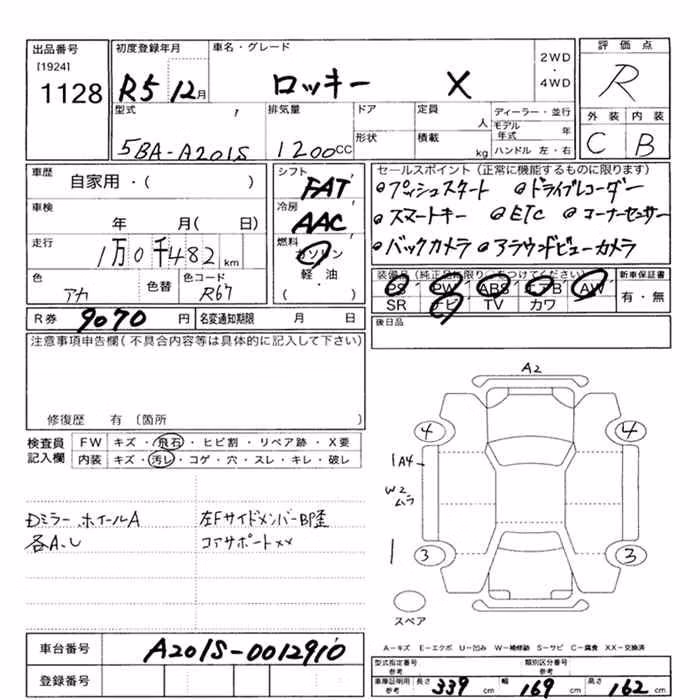 出品番号 初度登録年月 車名・グレード 2WD・4WD 評価点
[1924]
1128 R5 12月 ロッキー X R
型式 排気量 ドア 定員 人 ディーラー・並行 外装 内装
モデル年式 年
5BA-A201S 1200CC 形状 積載 kg ハンドル 左・右 C B
車歴 自家用・( ) シフト FAT セールスポイント(正常に機能するものに限ります)
◎プッシュスタート ◎ドライブレコーダー
車検 年 月( 日) 冷房 AAC ◎スマートキー ◎ETC ◎コーナーセンサー
走行 1万0千482km 燃料 ガソリン ◎バックカメラ ◎アラウンドビューカメラ
軽・油
( ・ )
色 アカ 色替 色コード R67 装備品(純正品に限り○をつけてください) 新車保証書
PS PW ABS エアB AW 有・無
SR ナビ TV カワ
R券 9070円 名変通知期限 月 日 後日品
注意事項申告欄(不具合内容等は具体的に記入して下さい)
修復歴 有 〔箇所 〕
検査員記入欄 FW キズ・飛石・ヒビ割・リペア跡・X要
内装 キズ・汚レ・コゲ・穴・スレ・キレ・破レ
A2
4 4
1A4
W2
ムラ
3 3
スペア
Dミラー ホイールA 左FサイドメンバーBP歪
各A、U コアサポートXX
A-キズ E-エクボ U-凹み W-補修跡 S-サビ C-腐食 XX-交換済
車台番号 A201S-0012910
型式指定番号 類別区分番号
参考 参考
登録番号 車庫証明用 参考 長さ 339cm 幅 169cm 高さ 162cm